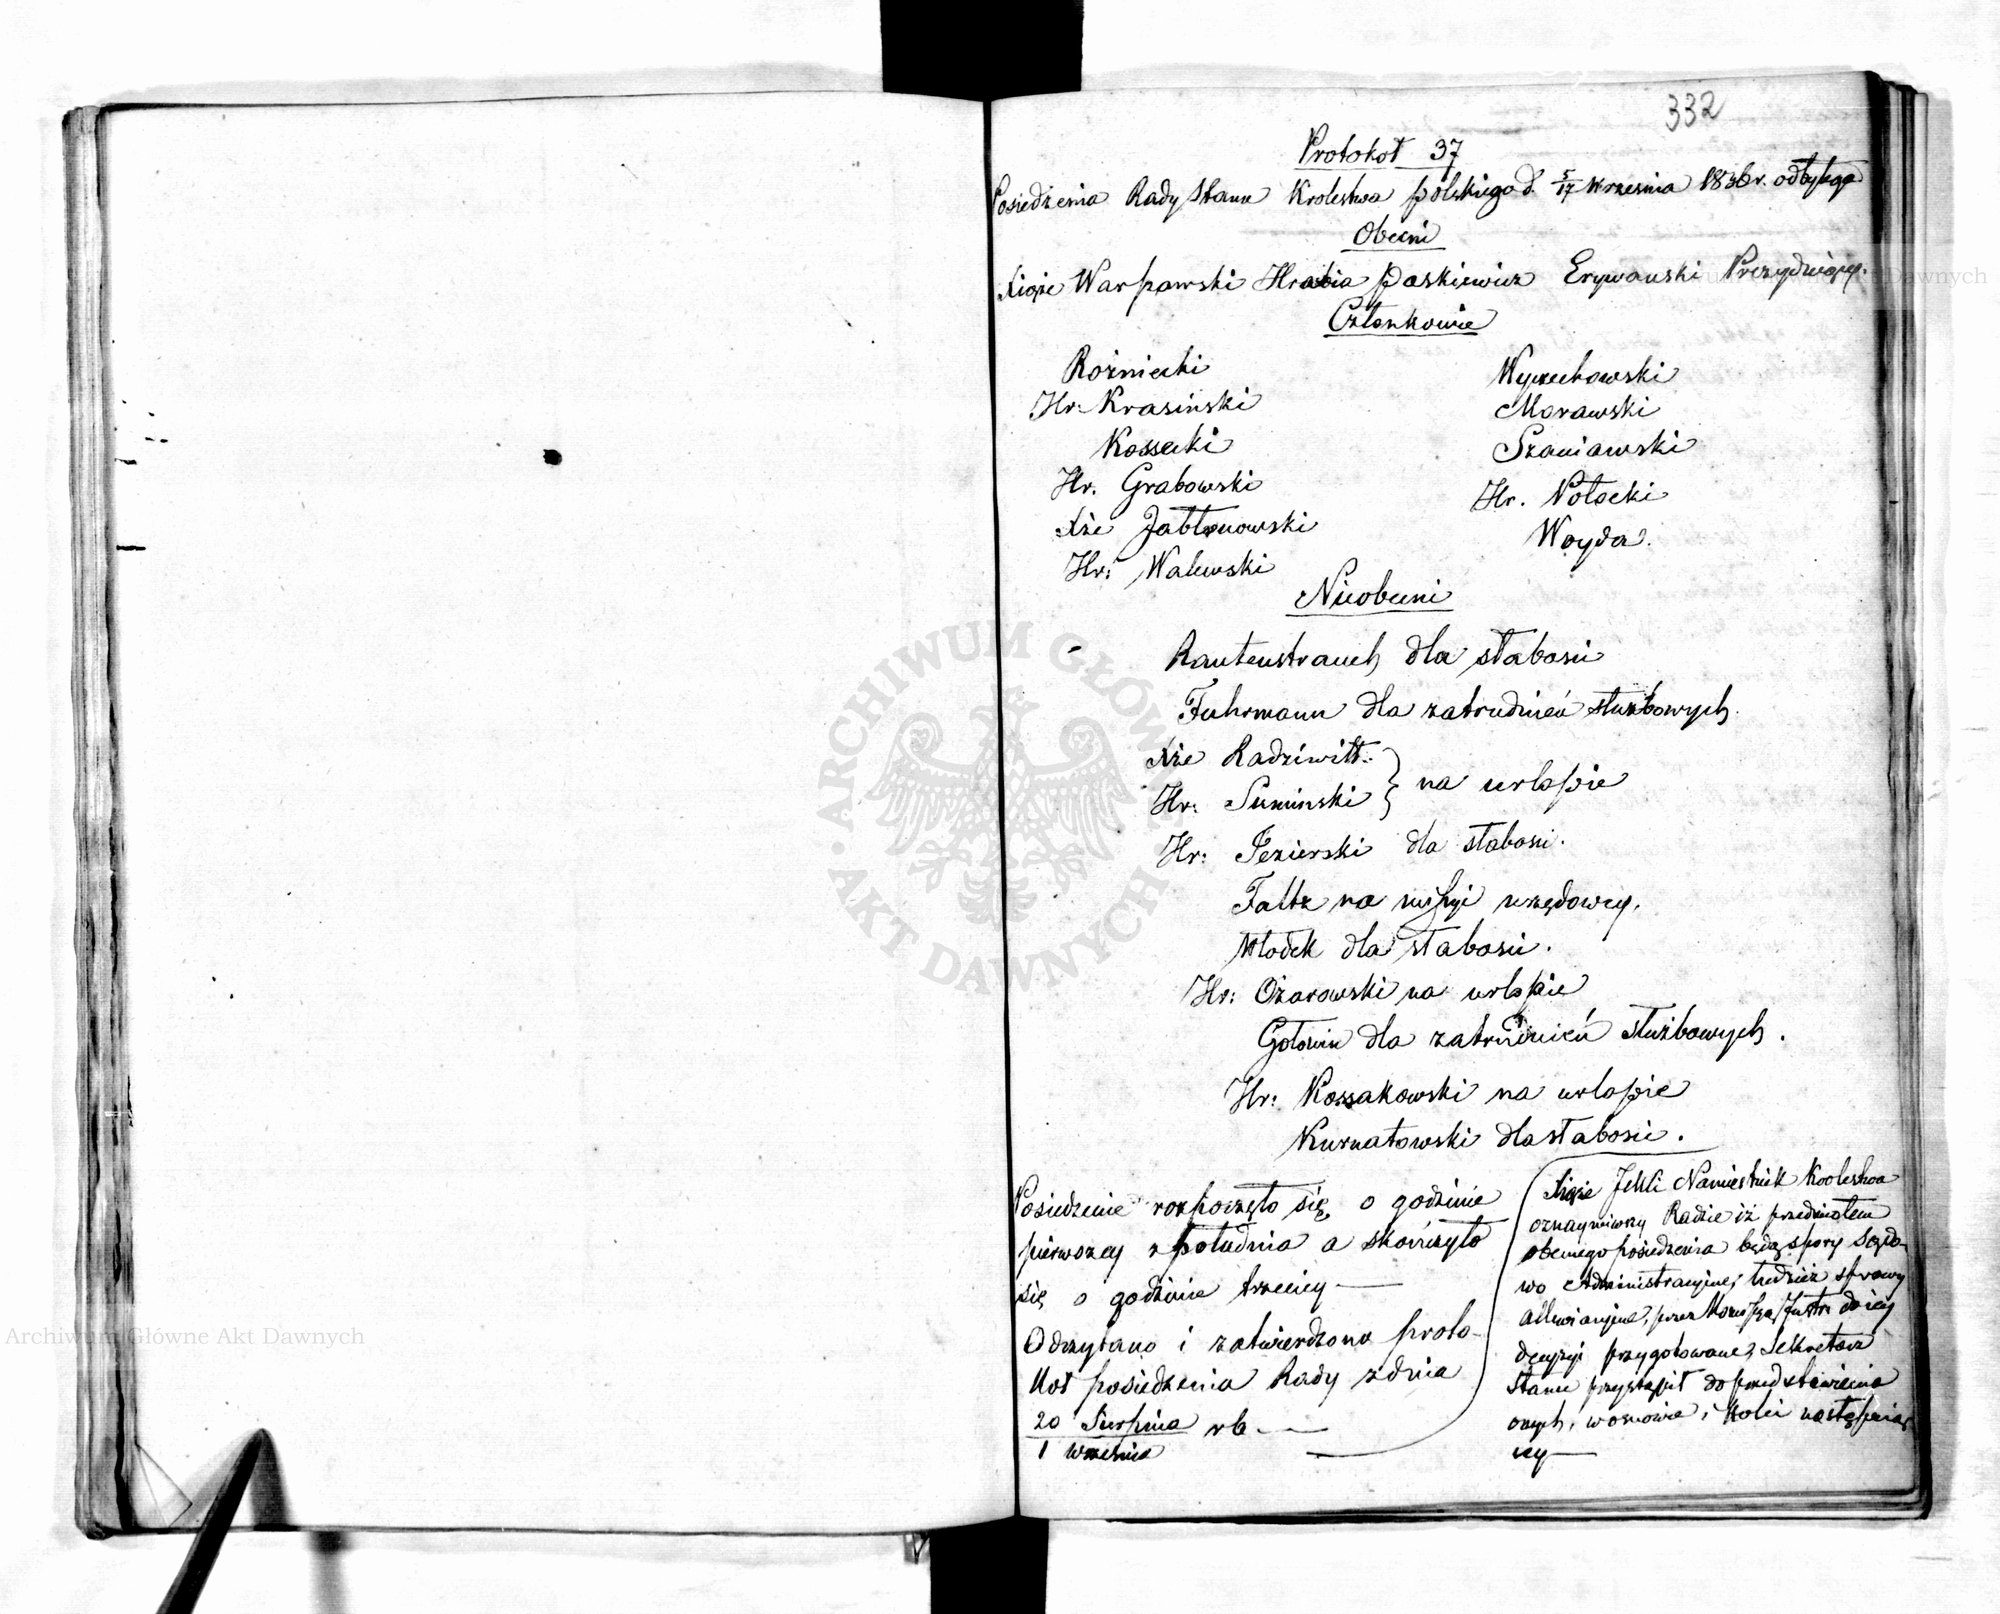 332
Protokół 37
Posiedzenia Rady Stanu Krolestwa polskiego d. 5/17 Września 1836 r. odbytego
Obecni
Xiąże Warszawski Hrabia Paskiewicz Erywański Prezydujący.
Członkowie
Rożniecki
Hr. Krasiński
Kossecki
Hr. Grabowski
Xże Jabłonowski
Hr: Walewski
Wyczechowski
Morawski
Szaniawski
Hr. Potocki
Woyda.
Nieobecni
Rautenstrauch dla słabości
Fuhrmann dla zatrudnień służbowych.
Xże Radziwiłł
Hr: Sumiński
na urlopie
Hr: Jezierski dla słabości.
Faltz na missyi urzędowey.
Młodek dla słabości.
Hr: Ożarowski na urlopie
Gołowin dla zatrudnień służbowych.
Hr: Kossakowski na urlopie
Kurnatowski dla słabości.
Posiedzenie rozpoczęło się o godzinie
pierwszey z południa a skończyło
się o godzinie trzeciey
Odczytano i zatwierdzono proto-
kół posiedzenia Rady z dnia
20 Sierpnia rb
1 Września
Xiąże Namiestnik Krolestwa
oznaymiwszy Radzie iż przedmiotem
obecnego posiedzenia będą spory Sądo-
wo Administracyjne, tudzież sprawy
przez do iey
decyzyi przygotowane, Sekretarz
Stanu przystąpił do przedstawienia
onych, w osnowie i kolei następuią
cey
ARCHIWUM GŁÓWNE AKT DAWNYCH
Archiwum Główne Akt Dawnych